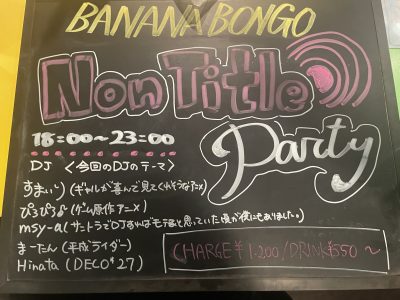 BANANA BONGO
Non Title
Party
18:00〜23:00
DJ 〈今回のDJのテーマ〉
すまいり (ギャルが喜んで見てくれそうなアニメ)
ぴろぴろ♂ (ゲーム原作アニメ)
msy-a (サントラでDJすればモテると思っていた頃が僕にもありました。)
まーたん (平成ライダー)
Hinata (DECO*27)
CHARGE ¥1.200/DRINK ¥550〜